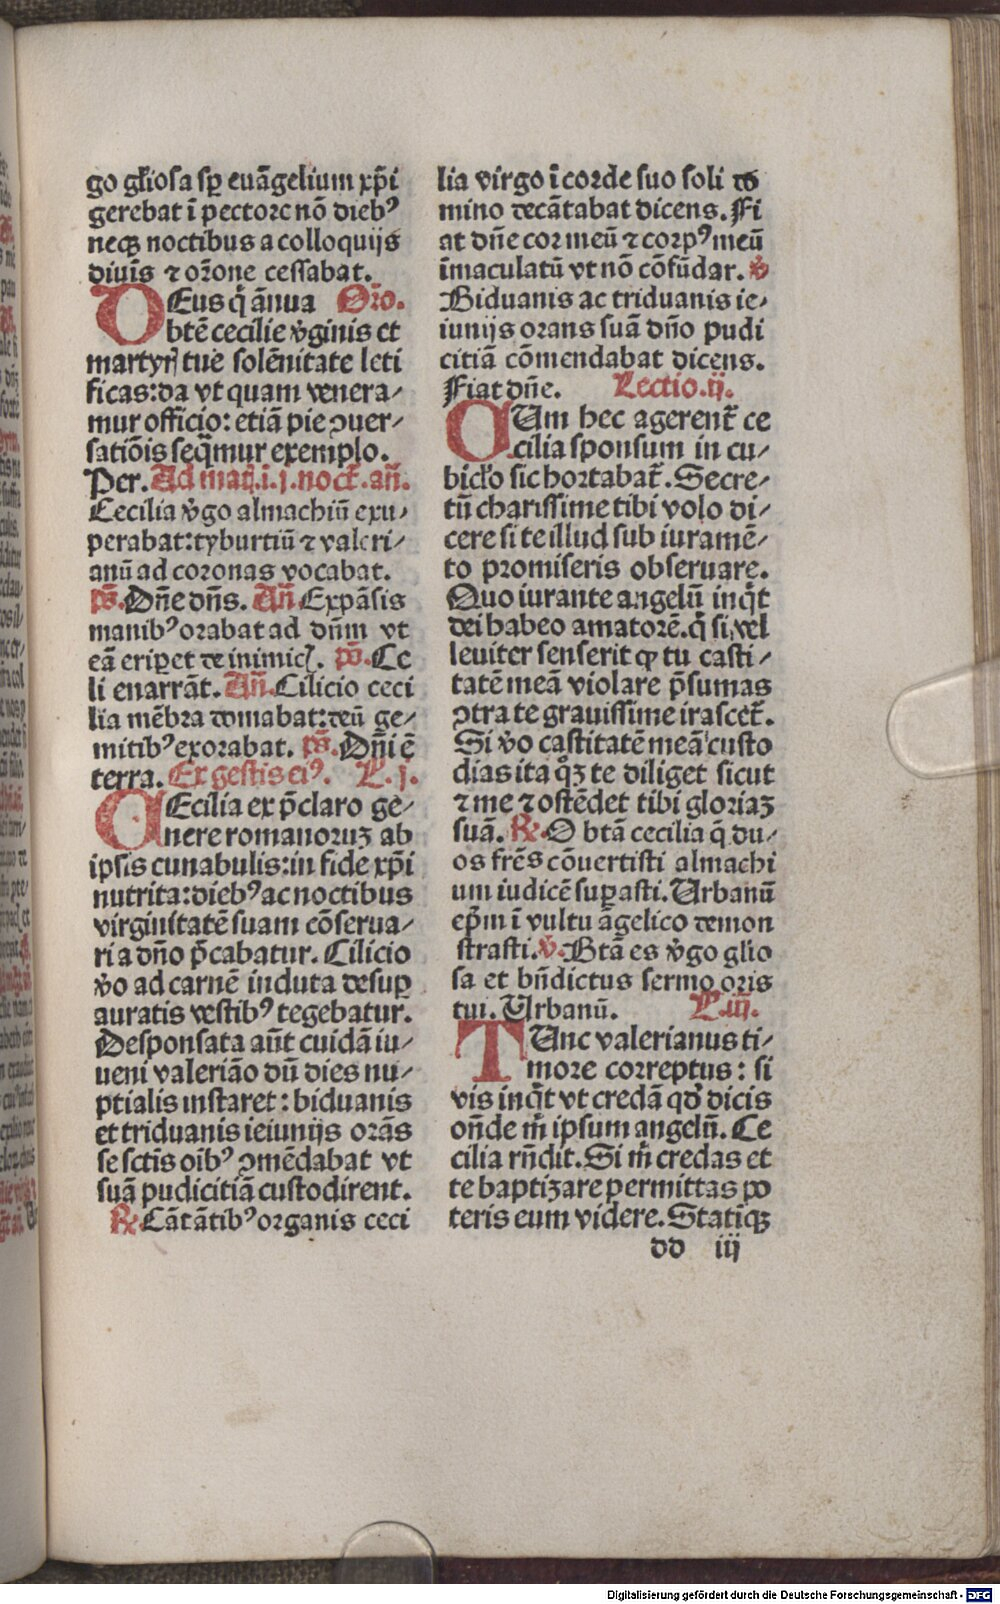 go gl̄iosa sꝑ euāgelium xp̄i
gerebat ī pectore nō diebꝰ
neqꝫ noctibus a colloquijs
diuīs ⁊ or̄one cessabat.
DEus q̄ ānua Or̄o.
btē cecilie v̄ginis et
martyrꝭ tue solēnitate leti
ficas: da vt quam venera⸗
mur officio: etiā pie ꝯuer⸗
satiōis seq̄mur exemplo.
Per. Ad mat̄. i. j. noct̄. an̄.
Cecilia v̄go almachiū exu⸗
perabat: tyburtiū ⁊ valeri⸗
anū ad coronas vocabat.
ps̄. Dn̄e dn̄s. An̄. Expāsis
manibꝰ orabat ad dn̄m vt
eā eriꝑet de inimicꝭ. ps̄. Ce
li enarrāt. An̄. Cilicio ceci
lia mēbra domabat: deū ge⸗
mitibꝰ exorabat. ps̄. Dn̄i ē
terra. Ex gestis eiꝰ. L. j.
CEcilia ex p̄claro ge⸗
nere romanoruꝫ ab
ipsis cunabulis: in fide xp̄i
nutrita: diebꝰ ac noctibus
virginitatē suam cōserua⸗
ri a dn̄o p̄cabatur. Cilicio
v̄o ad carnē induta desuꝑ
auratis vestibꝰ tegebatur.
Desponsata aūt cuidā iu⸗
ueni valeriāo dū dies nu⸗
ptialis instaret: biduanis
et triduanis ieiunijs orās
se sctīs oībꝰ ꝯmēdabat vt
suā pudicitiā custodirent.
℞. Cātātibꝰ organis ceci
lia virgo ī corde suo soli do
mino decātabat dicens. Fi
at dn̄e cor meū ⁊ corpꝰ meū
īmaculatū vt nō cōfūdar. v̄
Biduanis ac triduanis ie⸗
iunijs orans suā dn̄o pudi
citiā cōmendabat dicens.
Fiat dn̄e. Lectio. ij.
CUm hec agerent̄ ce
cilia sponsum in cu⸗
bicl̄o sic hortabat̄. Secre⸗
tū charissime tibi volo di⸗
cere si te illud sub iuramē⸗
to promiseris obseruare.
Quo iurante angelū inq̄t
dei habeo amatorē. q̄ si vel
leuiter senserit ꝙ tu casti⸗
tatē meā violare p̄sumas
ꝯtra te grauissime irascet̄.
Si v̄o castitatē meā custo
dias ita qꝫ te diliget sicut
⁊ me ⁊ ostēdet tibi gloriaꝫ
suā. ℞. O btā cecilia q̄ du⸗
os frēs cōuertisti almachi
um iudicē suꝑasti. Urbanū
ep̄m ī vultu āgelico demon
strasti. v̄. Btā es v̄go glio
sa et bn̄dictus sermo oris
tui. Urbanū. L. iij.
TUnc valerianus ti⸗
more correptus: si
vis inq̄t vt credā qd̄ dicis
on̄de m̄ ipsum angelū. Ce
cilia rn̄dit. Si m̄ credas et
te baptizare permittas po
teris eum videre. Statīqꝫ
dd iij
Digitalisierung gefördert durch die Deutsche Forschungsgemeinschaft - DFG